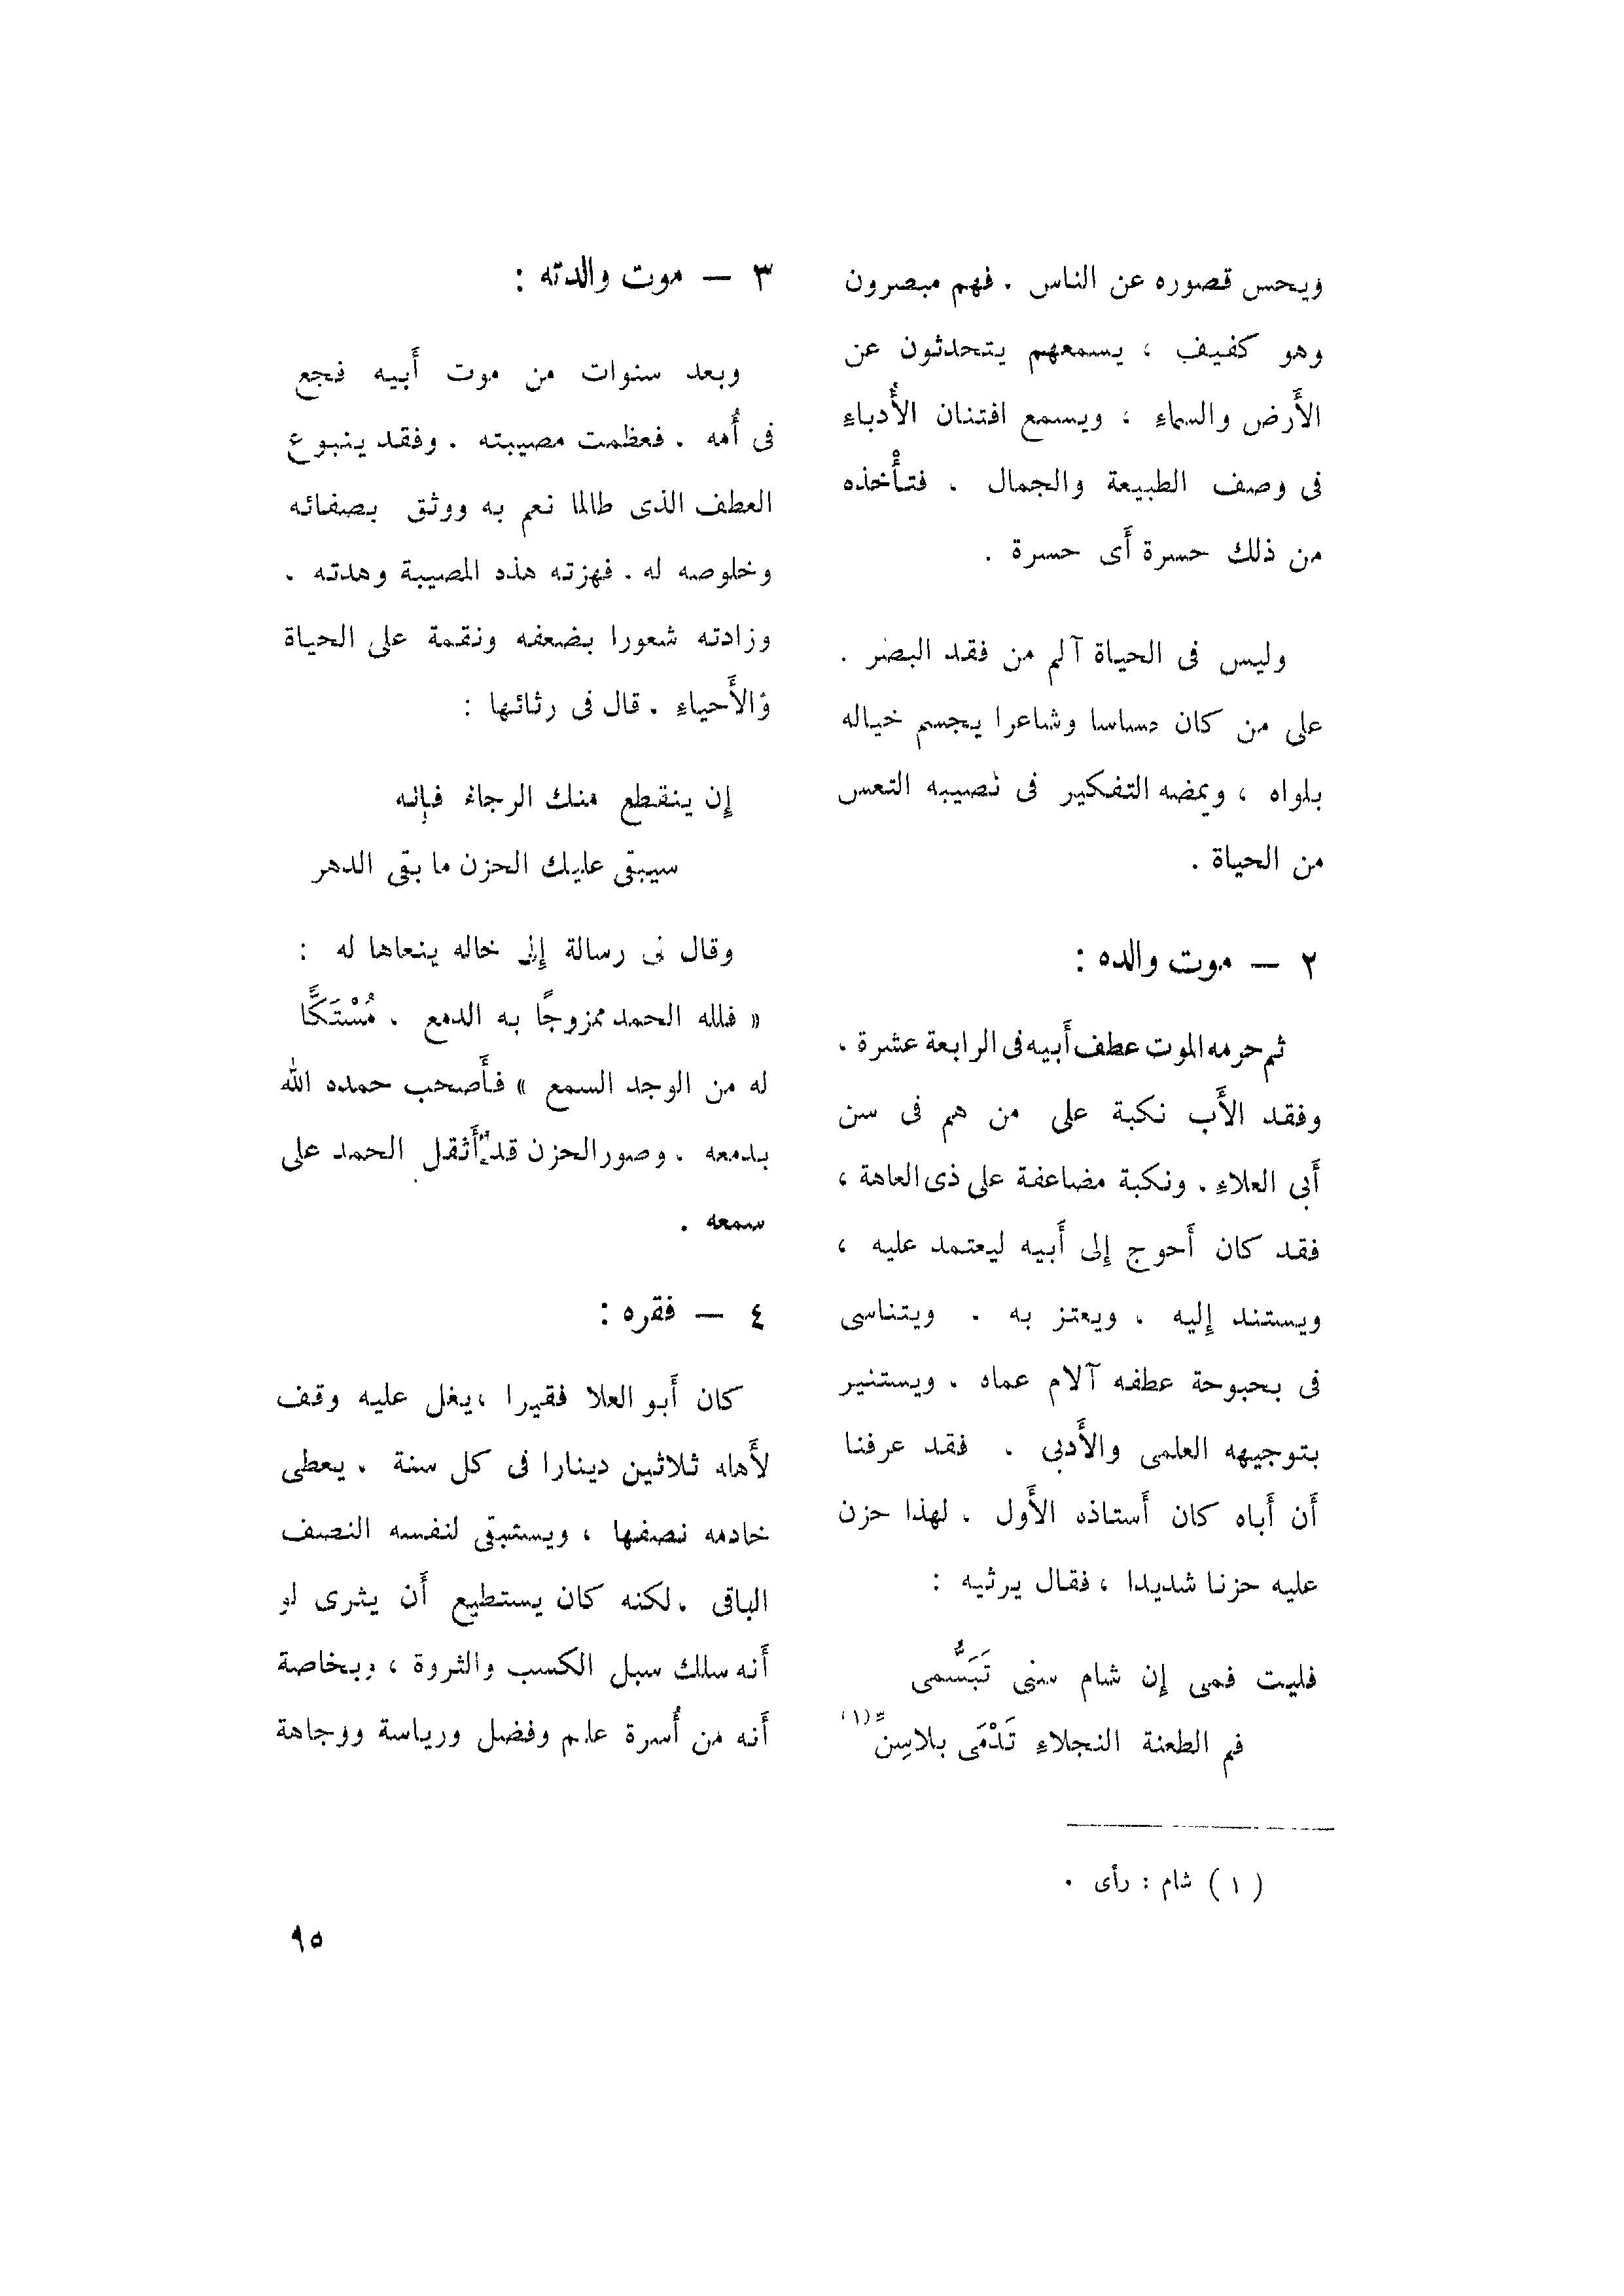 ويحس قصوره عن الناس . فهم مبصرون
وهو كفيف ، يسمعهم يتحدثون عن
الأَرض والسماءِ ، ويسمع افتنان الأُدباءِ
فى وصف الطبيعة والجمال . فتأْخذه
من ذلك حسرة أَى حسرة .
وليس فى الحياة آلم من فقد البصر .
على من كان حساسا وشاعرا يجسم خياله
بلواه ، ويمضه التفكير فى نصيبه التعس
من الحياة .
٢ — موت والده :
ثم حرمه الموت عطف أَبيه فى الرابعة عشرة .
وفقد الأَب نكبة على من هم فى سن
أَبى العلاءِ . ونكبة مضاعفة على ذى العاهة ،
فقد كان أَحوج إِلى أَبيه ليعتمد عليه ،
ويستند إِليه ، ويعتز به . ويتناسى
فى بحبوحة عطفه آلام عماه . ويستنير
بتوجيهه العلمى والأَدبى . فقد عرفنا
أَن أَباه كان أَستاذه الأَول . لهذا حزن
عليه حزنا شديدا ، فقال يرثيه :
فليت فمى إِن شام سنى تَبَسُّمى
فم الطعنة النجلاءِ تَدْمَى بلاسِنٍّ (١)
(١) شام : رأى .
٣ — موت والدته :
وبعد سنوات من موت أَبيه فجع
فى أُمه . فعظمت مصيبته . وفقد ينبوع
العطف الذى طالما نعم به ووثق بصفائه
وخلوصه له . فهزته هذه المصيبة وهدته .
وزادته شعورا بضعفه ونقمة على الحياة
والأَحياءِ . قال فى رثائها :
إِن ينقطع منك الرجاءُ فإِنه
سيبقى عليك الحزن ما بقى الدهر
وقال فى رسالة إِلى خاله ينعاها له :
« فلله الحمد ممزوجًا به الدمع . مُسْتَكًّا
له من الوجد السمع » فأَصحب حمده الله
بدمعه . وصور الحزن قد أَثقل الحمد على
سمعه .
٤ — فقره :
كان أَبو العلا فقيرا ، يغل عليه وقف
لأَهله ثلاثين دينارا فى كل سنة . يعطى
خادمه نصفها ، ويستبقى لنفسه النصف
الباقى . لكنه كان يستطيع أَن يثرى لو
أَنه سلك سبل الكسب والثروة ، وبخاصة
أَنه من أُسرة علم وفضل ورياسة ووجاهة
٩٥